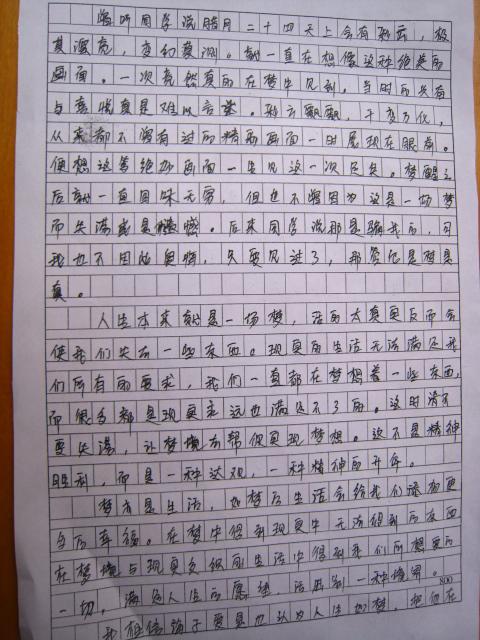 曾听同学说腊月二十四天上会有彩云，极
其漂亮，变幻莫测。就一直在想像这种绝美的
画面。一次竟然真的在梦中见到。当时的兴奋
与喜悦真是难以言尽。彩云飘飘，千变万化，
从来都不曾有过的精彩画面一时展现在眼前。
便想这等绝妙画面一生见这一次足矣。梦醒之
后就一直回味无穷，但也不曾因为这是一场梦
而失落或是懊恼。后来同学说那是骗我的，可
我也不因此懊恼，只要见过了，那管它是梦是
真。
人生本来就是一场梦，活的太真实反而会
使我们失去一些东西。现实的生活无法满足我
们所有的要求，我们一直都在梦想着一些东西，
而很多都是现实永远也满足不了的。这时请不
要失落，让梦境去帮你实现梦想。这不是精神
胜利，而是一种达观，一种精神的升华。
梦亦是生活，如梦后生活会给我们添加更
多的幸福。在梦中得到现实中无法得到的东西
在梦境与现实交织的生活中得到我们所想要的
一切，满足人生的愿望，活出别一种境界。
800
我相信庄子要是也认为人生如梦，把他在